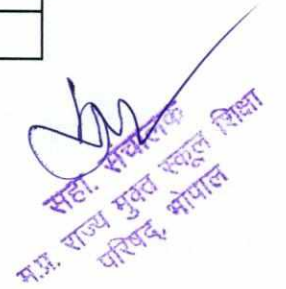 सहा. संचालक
म.प्र. राज्य मुक्त स्कूल शिक्षा
परिषद, भोपाल